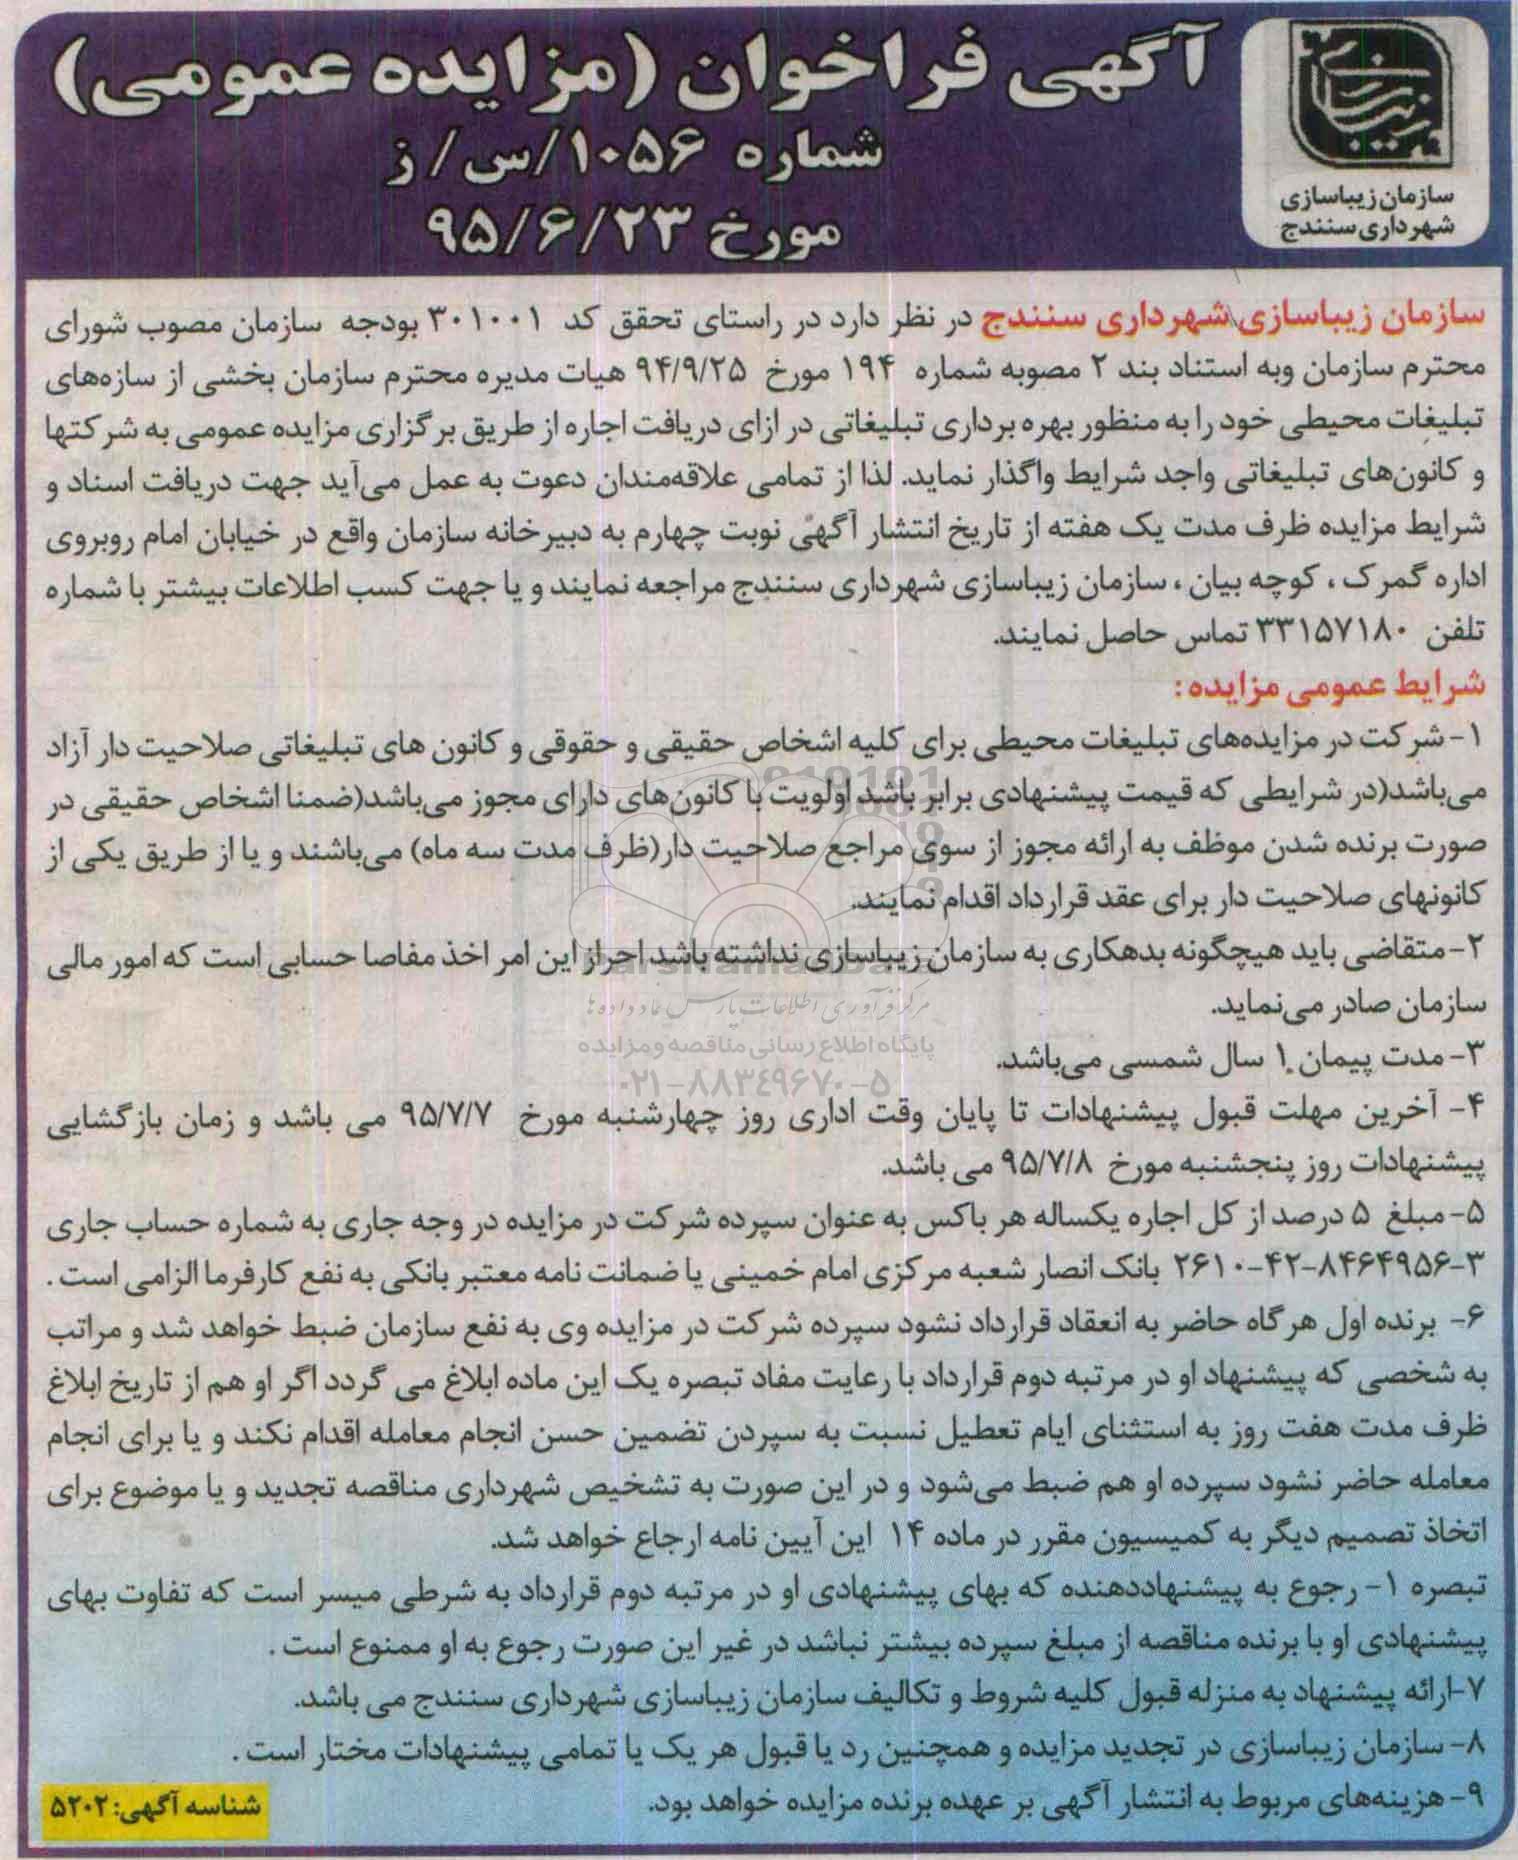 آگهی فراخوان (مزایده عمومی)
شماره ۱۰۵۶/س/ ز
مورخ ۹۵/۶/۲۳
سازمان زیباسازی
شهرداری سنندج
سازمان زیباسازی شهرداری سنندج در نظر دارد در راستای تحقق کد ۳۰۱۰۰۱ بودجه سازمان مصوب شورای
محترم سازمان وبه استناد بند ۲ مصوبه شماره ۱۹۴ مورخ ۹۴/۹/۲۵ هیات مدیره محترم سازمان بخشی از سازه‌های
تبلیغات محیطی خود را به منظور بهره برداری تبلیغاتی در ازای دریافت اجاره از طریق برگزاری مزایده عمومی به شرکتها
و کانون‌های تبلیغاتی واجد شرایط واگذار نماید. لذا از تمامی علاقه‌مندان دعوت به عمل می‌آید جهت دریافت اسناد و
شرایط مزایده ظرف مدت یک هفته از تاریخ انتشار آگهی نوبت چهارم به دبیرخانه سازمان واقع در خیابان امام روبروی
اداره گمرک ، کوچه بیان ، سازمان زیباسازی شهرداری سنندج مراجعه نمایند و یا جهت کسب اطلاعات بیشتر با شماره
تلفن ۳۳۱۵۷۱۸۰ تماس حاصل نمایند.
شرایط عمومی مزایده :
۱- شرکت در مزایده‌های تبلیغات محیطی برای کلیه اشخاص حقیقی و حقوقی و کانون های تبلیغاتی صلاحیت دار آزاد
می‌باشد(در شرایطی که قیمت پیشنهادی برابر باشد اولویت با کانون‌های دارای مجوز می‌باشد(ضمنا اشخاص حقیقی در
صورت برنده شدن موظف به ارائه مجوز از سوی مراجع صلاحیت دار(ظرف مدت سه ماه) می‌باشند و یا از طریق یکی از
کانونهای صلاحیت دار برای عقد قرارداد اقدام نمایند.
۲- متقاضی باید هیچگونه بدهکاری به سازمان زیباسازی نداشته باشد احراز این امر اخذ مفاصا حسابی است که امور مالی
سازمان صادر می‌نماید.
مرکز فرآوری اطلاعات پارس نماد داده‌ها
پایگاه اطلاع رسانی مناقصه و مزایده
۳- مدت پیمان ۱ سال شمسی می‌باشد.
۰۲۱-۸۸۳۴۹۶۷۰-۵
۴- آخرین مهلت قبول پیشنهادات تا پایان وقت اداری روز چهارشنبه مورخ ۹۵/۷/۷ می باشد و زمان بازگشایی
پیشنهادات روز پنجشنبه مورخ ۹۵/۷/۸ می باشد.
۵- مبلغ ۵ درصد از کل اجاره یکساله هر باکس به عنوان سپرده شرکت در مزایده در وجه جاری به شماره حساب جاری
۲۶۱۰-۴۲-۸۴۶۴۹۵۶-۳ بانک انصار شعبه مرکزی امام خمینی یا ضمانت نامه معتبر بانکی به نفع کارفرما الزامی است .
۶- برنده اول هرگاه حاضر به انعقاد قرارداد نشود سپرده شرکت در مزایده وی به نفع سازمان ضبط خواهد شد و مراتب
به شخصی که پیشنهاد او در مرتبه دوم قرارداد با رعایت مفاد تبصره یک این ماده ابلاغ می گردد اگر او هم از تاریخ ابلاغ
ظرف مدت هفت روز به استثنای ایام تعطیل نسبت به سپردن تضمین حسن انجام معامله اقدام نکند و یا برای انجام
معامله حاضر نشود سپرده او هم ضبط می‌شود و در این صورت به تشخیص شهرداری مناقصه تجدید و یا موضوع برای
اتخاذ تصمیم دیگر به کمیسیون مقرر در ماده ۱۴ این آیین نامه ارجاع خواهد شد.
تبصره ۱- رجوع به پیشنهاددهنده که بهای پیشنهادی او در مرتبه دوم قرارداد به شرطی میسر است که تفاوت بهای
پیشنهادی او با برنده مناقصه از مبلغ سپرده بیشتر نباشد در غیر این صورت رجوع به او ممنوع است .
۷-ارائه پیشنهاد به منزله قبول کلیه شروط و تکالیف سازمان زیباسازی شهرداری سنندج می باشد.
۸- سازمان زیباسازی در تجدید مزایده و همچنین رد یا قبول هر یک یا تمامی پیشنهادات مختار است .
۹- هزینه‌های مربوط به انتشار آگهی بر عهده برنده مزایده خواهد بود.
شناسه آگهی: ۵۲۰۲